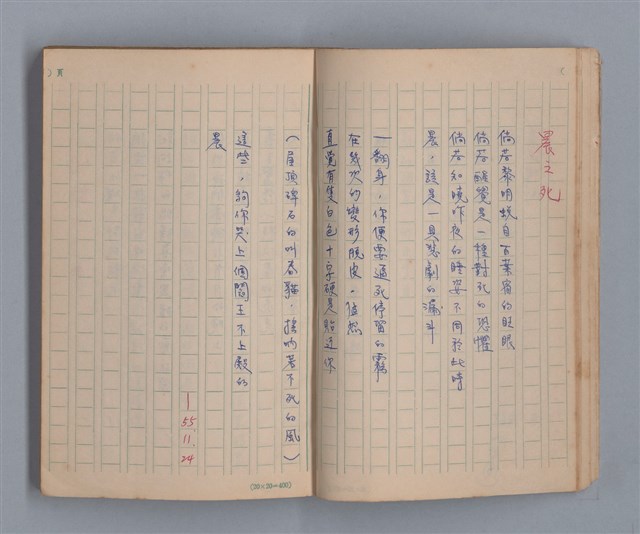 晨之死
倘若黎明蜕自百葉窗的旺眼
倘若醒覺是一種對死的恐懼
倘若知曉昨夜的睡姿不同於此時
晨,該是一具悲劇的漏斗
一翻身,你便要逼死停留的霧
在幾次的變形脫皮。值怒
直覺有隻白色十字硬是貼近你
(屋頂碑石的叫春貓,接吻著不死的風)
這些,夠你哭上個閻王不上殿的
晨
—55.11.24
(20×20=400)
)頁
(